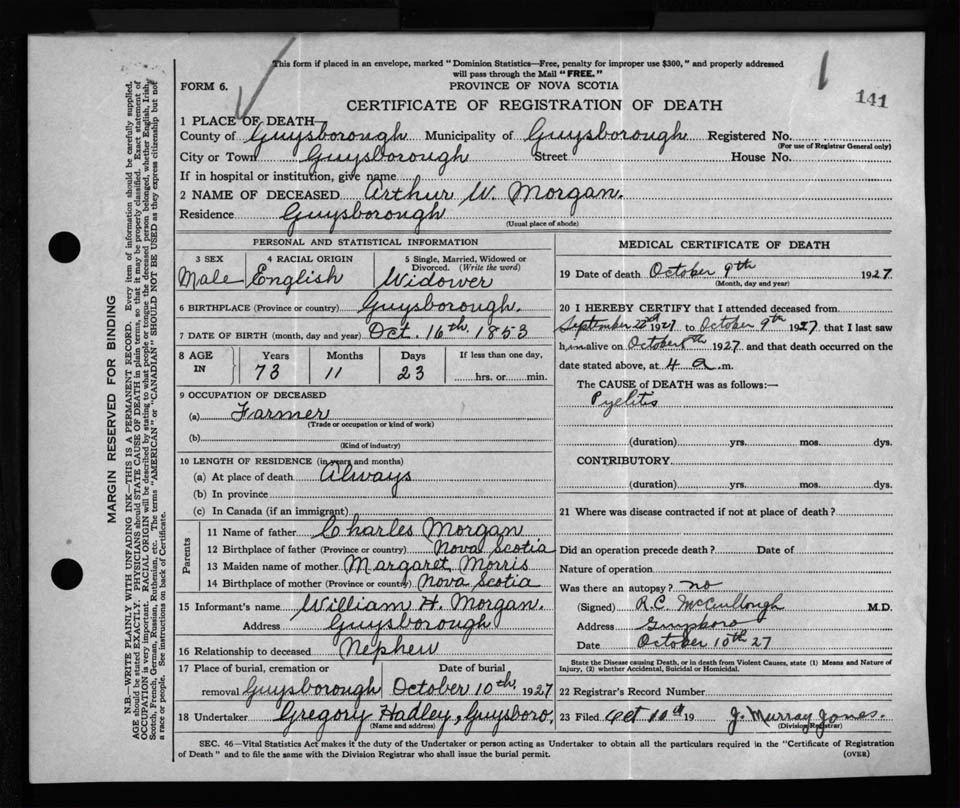 This form if placed in an envelope, marked "Dominion Statistics—Free, penalty for improper use $300," and properly addressed
will pass through the Mail "FREE."
FORM 6.
PROVINCE OF NOVA SCOTIA
141
CERTIFICATE OF REGISTRATION OF DEATH
1 PLACE OF DEATH—
County of Guysborough Municipality of Guysborough Registered No.
(For use of Registrar General only)
City or Town Guysborough Street House No.
If in hospital or institution, give name
2 NAME OF DECEASED Arthur W. Morgan.
Residence Guysborough
(Usual place of abode)
PERSONAL AND STATISTICAL INFORMATION
3 SEX 4 RACIAL ORIGIN 5 Single, Married, Widowed or Divorced. (Write the word)
Male English Widower
6 BIRTHPLACE (Province or country) Guysborough.
7 DATE OF BIRTH (month, day and year) Oct. 16th, 1853
8 AGE IN Years Months Days If less than one day,
73 11 23 hrs. or min.
9 OCCUPATION OF DECEASED
(a) Farmer
(Trade or occupation or kind of work)
(b)
(Kind of industry)
10 LENGTH OF RESIDENCE (in years and months)
(a) At place of death Always
(b) In province
(c) In Canada (if an immigrant)
Parents
11 Name of father Charles Morgan
12 Birthplace of father (Province or country) Nova Scotia
13 Maiden name of mother Margaret Morris
14 Birthplace of mother (Province or country) Nova Scotia
15 Informant's name William H. Morgan.
Address Guysborough
16 Relationship to deceased Nephew
17 Place of burial, cremation or Date of burial
removal Guysborough October 10th, 1927
18 Undertaker Gregory Hadley, Guysboro.
(Name and address)
MEDICAL CERTIFICATE OF DEATH
19 Date of death October 9th 1927
(Month, day and year)
20 I HEREBY CERTIFY that I attended deceased from
September 22nd 1927 to October 9th 1927 that I last saw
him alive on October 8th 1927 and that death occurred on the
date stated above, at 4 a. m.
The CAUSE of DEATH was as follows:—
Pyelitis
(duration) yrs. mos. dys.
CONTRIBUTORY
(duration) yrs. mos. dys.
21 Where was disease contracted if not at place of death?
Did an operation precede death? Date of
Nature of operation
Was there an autopsy? no
(Signed) R.C. McCullough M.D.
Address Guysboro
Date October 10th 27
State the Disease causing Death, or in death from Violent Causes, state (1) Means and Nature of
Injury, (2) whether Accidental, Suicidal or Homicidal.
22 Registrar's Record Number
23 Filed Oct 10th 19 J. Murray Jones.
(Division Registrar)
SEC. 46—Vital Statistics Act makes it the duty of the Undertaker or person acting as Undertaker to obtain all the particulars required in the "Certificate of Registration
of Death" and to file the same with the Division Registrar who shall issue the burial permit. (OVER)
MARGIN RESERVED FOR BINDING
N.B.—WRITE PLAINLY WITH UNFADING INK—THIS IS A PERMANENT RECORD. Every item of information should be carefully supplied.
AGE should be stated EXACTLY. PHYSICIANS should STATE CAUSE OF DEATH in plain terms, so that it may be properly classified. Exact statement of
OCCUPATION is very important. RACIAL ORIGIN will be described by stating to what people or tongue the deceased person belonged, whether English, Irish,
Scotch, French, German, Russian, Ruthenian, etc. The terms "AMERICAN" or "CANADIAN" SHOULD NOT BE USED as they express citizenship but not
a race or people. See instructions on back of Certificate.